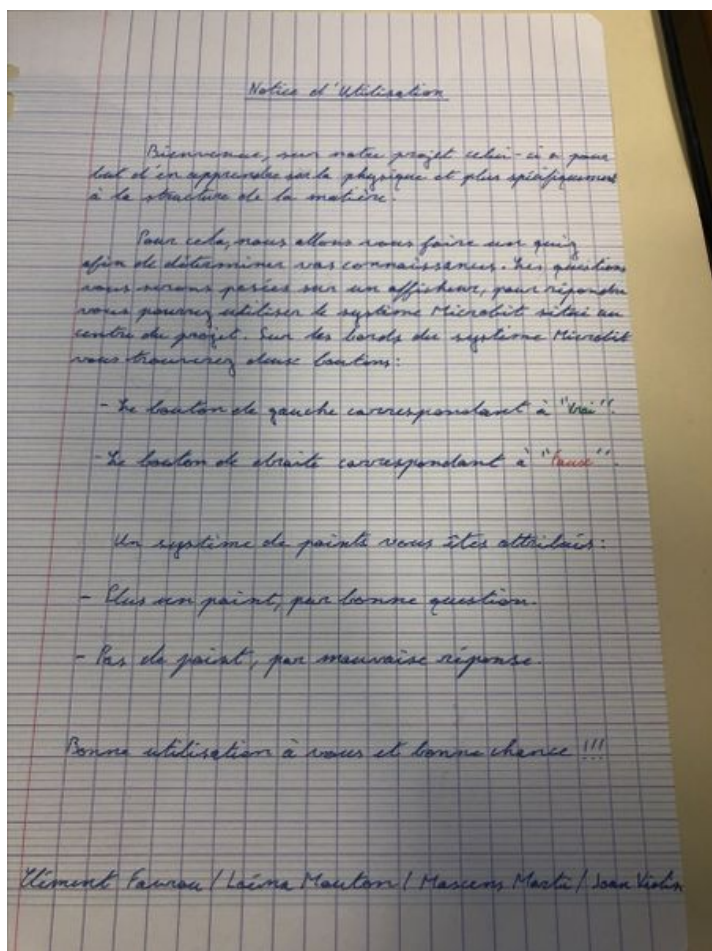 Notice d'Utilisation
Bienvenue, sur notre projet celui-ci a pour
but d'en apprendre sur la physique et plus spécifiquement
à la structure de la matière.
Pour cela, nous allons vous faire un quiz
afin de déterminer vos connaissances. Les questions
vous serons posées sur un afficheur, pour répondre
vous pourrez utiliser le système Microbit situé au
centre du projet. Sur les bords du système Microbit
vous trouverez deux boutons:
- Le bouton de gauche correspondant à "Vrai".
- Le bouton de droite correspondant à "Faux".
Un système de points vous êtes attribués:
- Plus un point, par bonne question.
- Pas de point, par mauvaise réponse.
Bonne utilisation à vous et bonne chance !!!
Clément / Mouton / / Joan